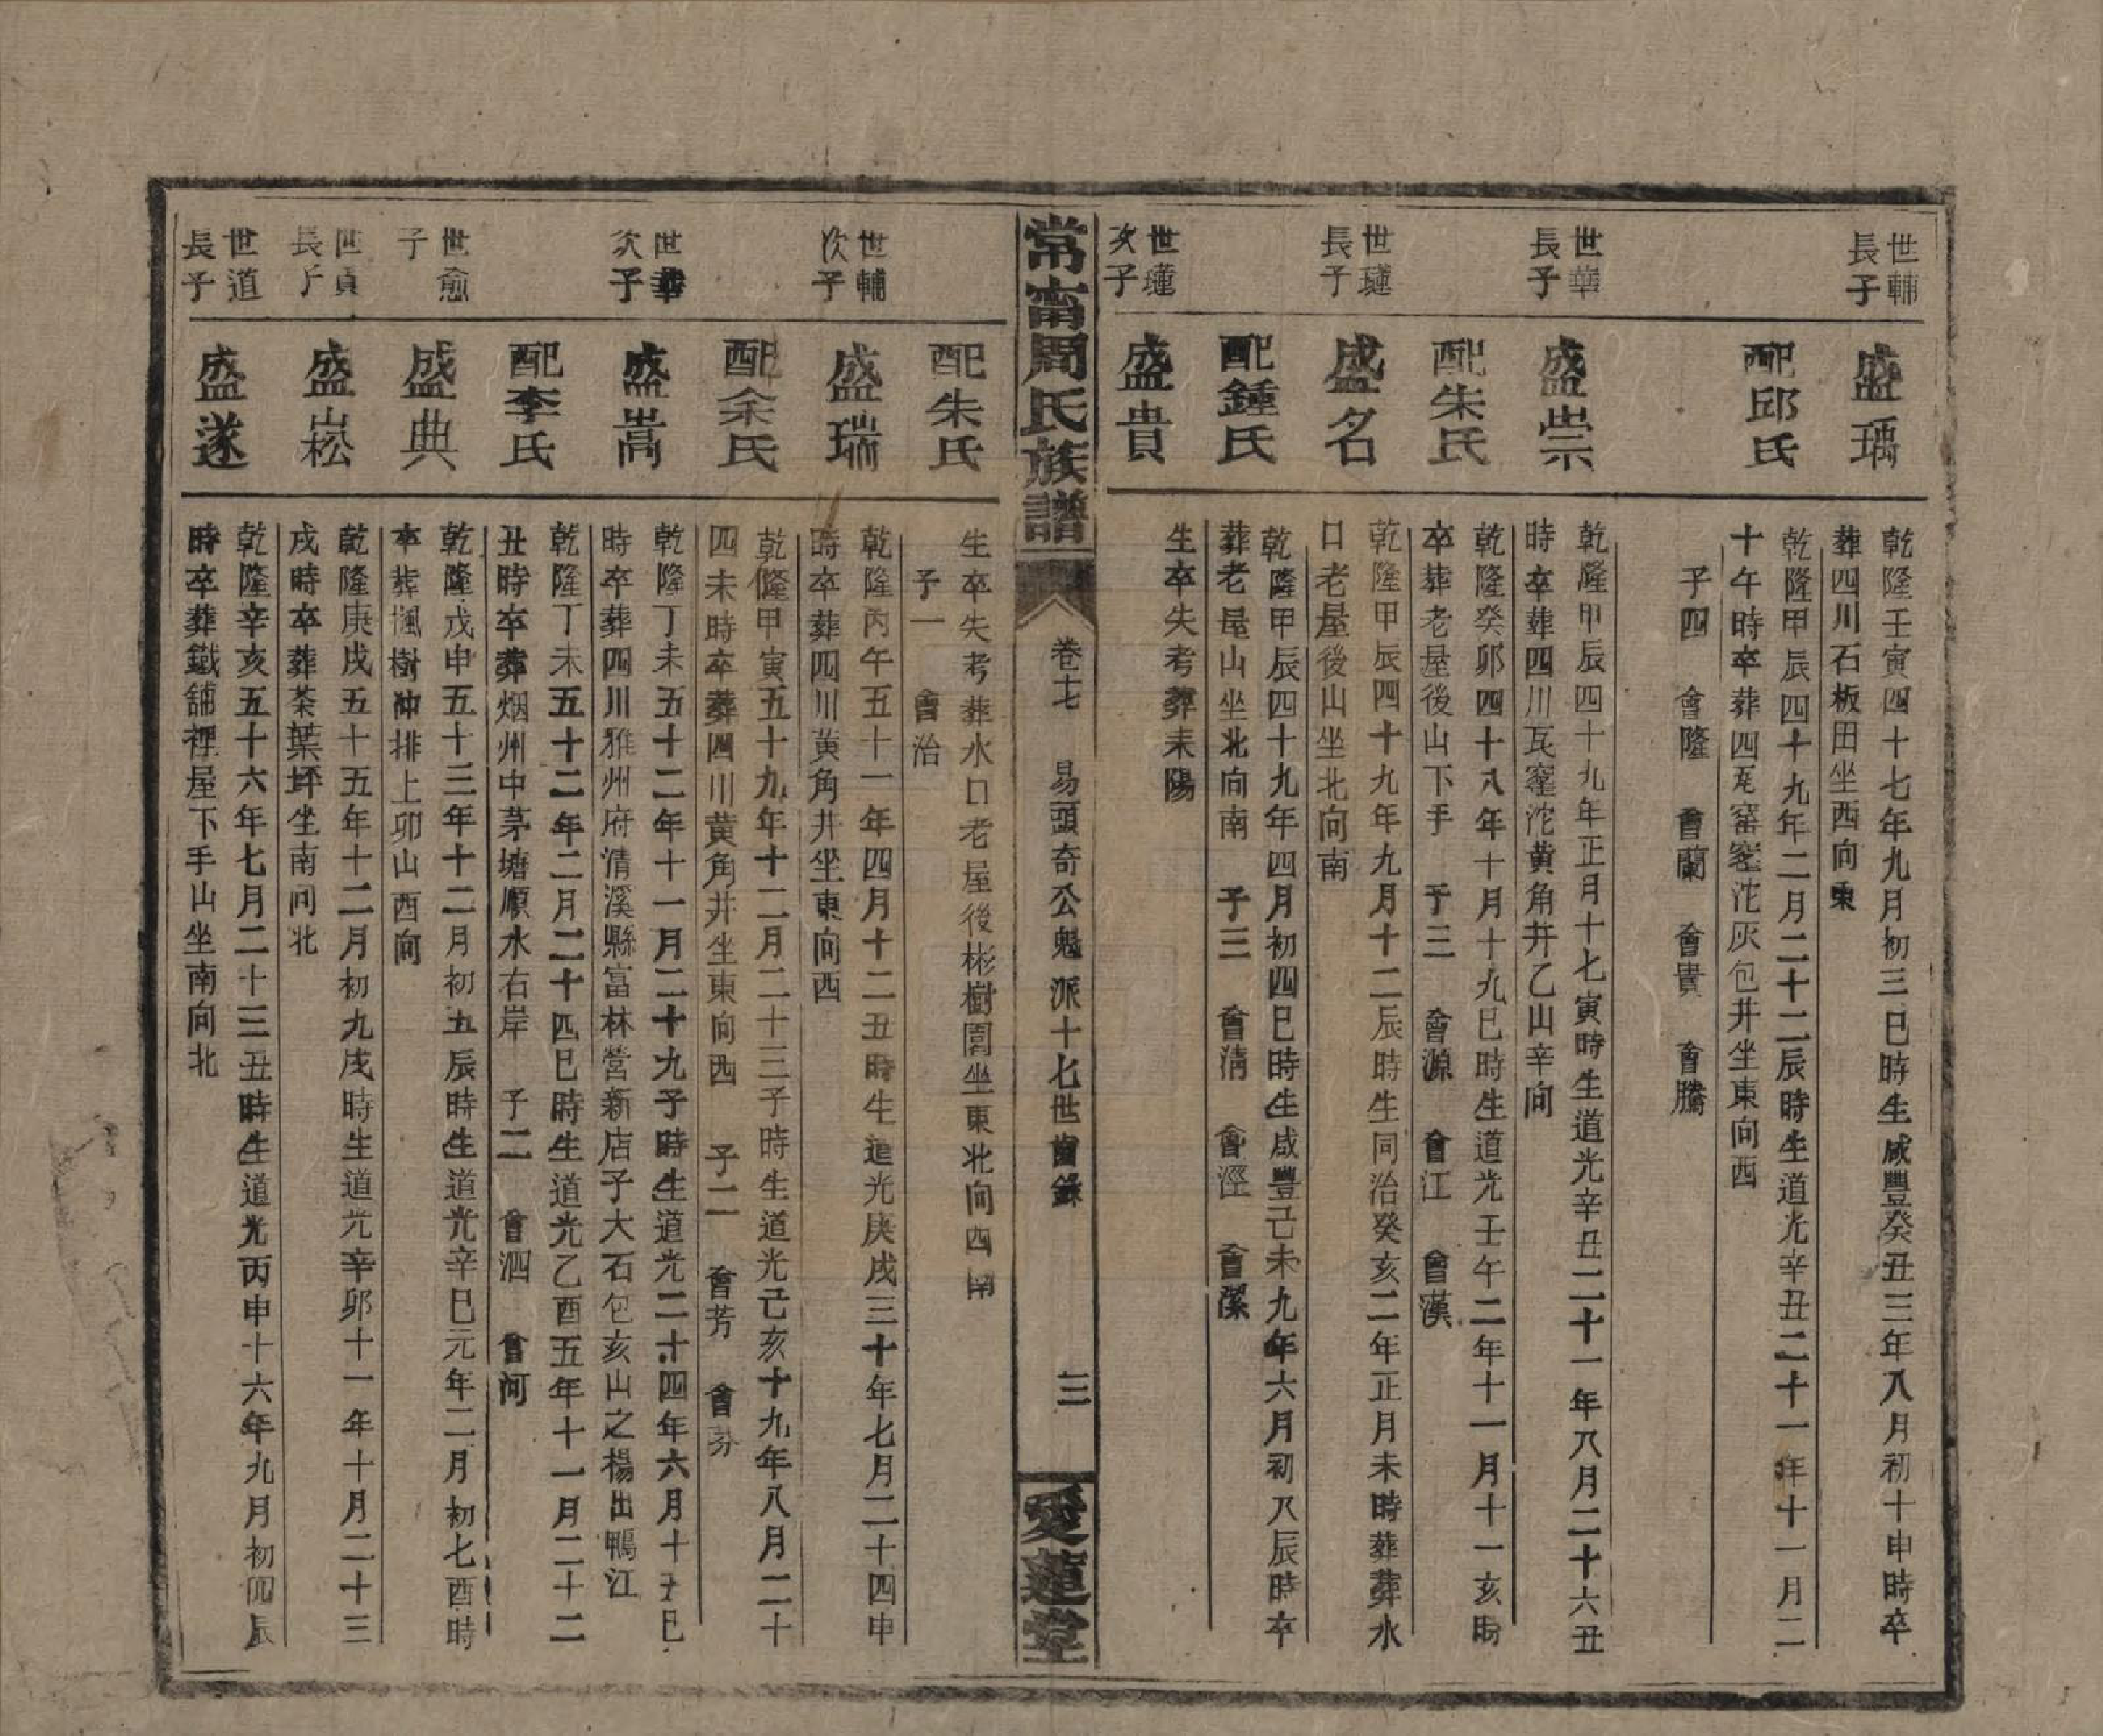 世輔
長子
盛瑀
乾隆壬寅四十七年九月初三巳時生咸豐癸丑三年八月初十申時卒
葬四川石板田坐西向東
配邱氏
乾隆甲辰四十九年二月二十二辰時生道光辛丑二十一年十一月二
十午時卒葬四瓦窰窰沱灰包井坐東向西
子四 會隆 會蘭 會貴 會騰
世華
長子
盛崇
乾隆甲辰四十九年正月十七寅時生道光辛丑二十一年八月二十六丑
時卒葬四川瓦窰沱黃角井乙山辛向
配朱氏
乾隆癸卯四十八年十月十九巳時生道光壬午二年十一月十一亥時
卒葬老屋後山下手 子三 會源 會江 會漢
世璉
長子
盛名
乾隆甲辰四十九年九月十二辰時生同治癸亥二年正月未時葬葬水
口老屋後山坐北向南
配鍾氏
乾隆甲辰四十九年四月初四巳時生咸豐己未九年六月初八辰時卒
葬老屋山坐北向南 子三 會清 會涇 會潔
世瓘
次子
盛貴
生卒失考葬耒陽
常甯周氏族譜
卷十七 易頭奇公魁派十七世齒錄
三
愛蓮堂
配朱氏
生卒失考葬水口老屋後彬樹園坐東北向西南
子一 會治
世輔
次子
盛瑞
乾隆丙午五十一年四月十二丑時生道光庚戌三十年七月二十四申
時卒葬四川黃角井坐東向西
配余氏
乾隆甲寅五十九年十二月二十三子時生道光己亥十九年八月二十
四未時卒葬四川黃角井坐東向西 子二 會芳 會芬
世華
次子
盛嵩
乾隆丁未五十二年十一月二十九子時生道光二十四年六月十七巳
時卒葬四川雅州府清溪縣富林營新店子大石包亥山之楊出鴨江
配李氏
乾隆丁未五十二年二月二十四巳時生道光乙酉五年十一月二十二
丑時卒葬烟州中茅塘順水右岸 子二 會泗 會河
世愈
子
盛典
乾隆戊申五十三年十二月初五辰時生道光辛巳元年二月初七酉時
卒葬楓樹冲排上卯山酉向
世貞
長子
盛崧
乾隆庚戌五十五年十二月初九戌時生道光辛卯十一年十月二十三
戌時卒葬茶葉坪坐南向北
世道
長子
盛遂
乾隆辛亥五十六年七月二十三丑時生道光丙申十六年九月初四辰
時卒葬鐵舖裡屋下手山坐南向北